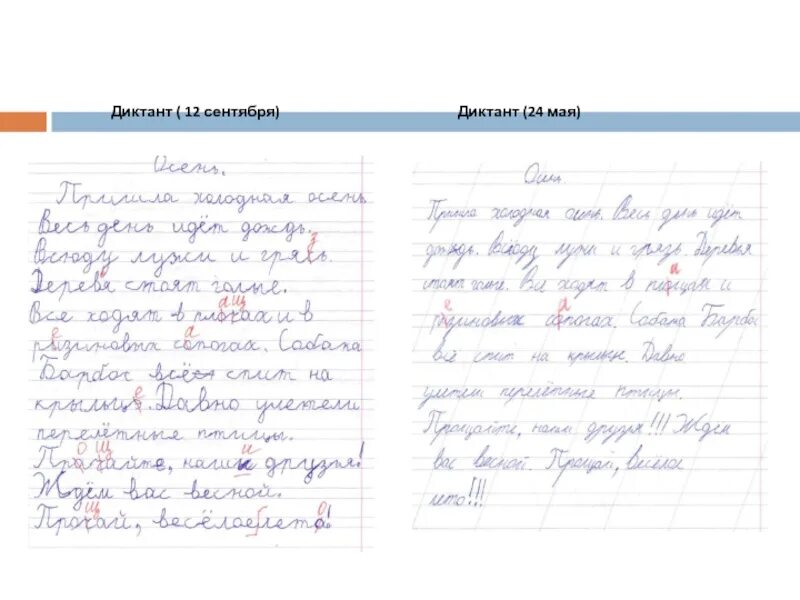 Диктант ( 12 сентября)
Осень.
Пришла холодная осень
Весь день идёт дождь.
Всюду лужи и грясь.
з
Деревя стоят голые.
ь
Все ходят в плочах и в
а щ
ризиновых сопогах. Собака
е а
Барбос всё спит на
крыльце. Давно улетели
е
перелётные птицы.
Прачайте, наши друзья!
о щ и
Ждём вас весной.
Прочай, весёлое лето!
щ о
Диктант (24 мая)
Осень.
Пришла холодная осень. Весь день идёт
дождь. Всюду лужи и грязь. Деревья
стоят голые. Все ходят в и
а
ризиновых сопогах. Собака Барбо
е а
всё спит на крыльце. Давно
улетели перелётные птицы.
Прощайте, наши друзья!!! Ждём
вас весной. Прощай, весёлое
лето!!!